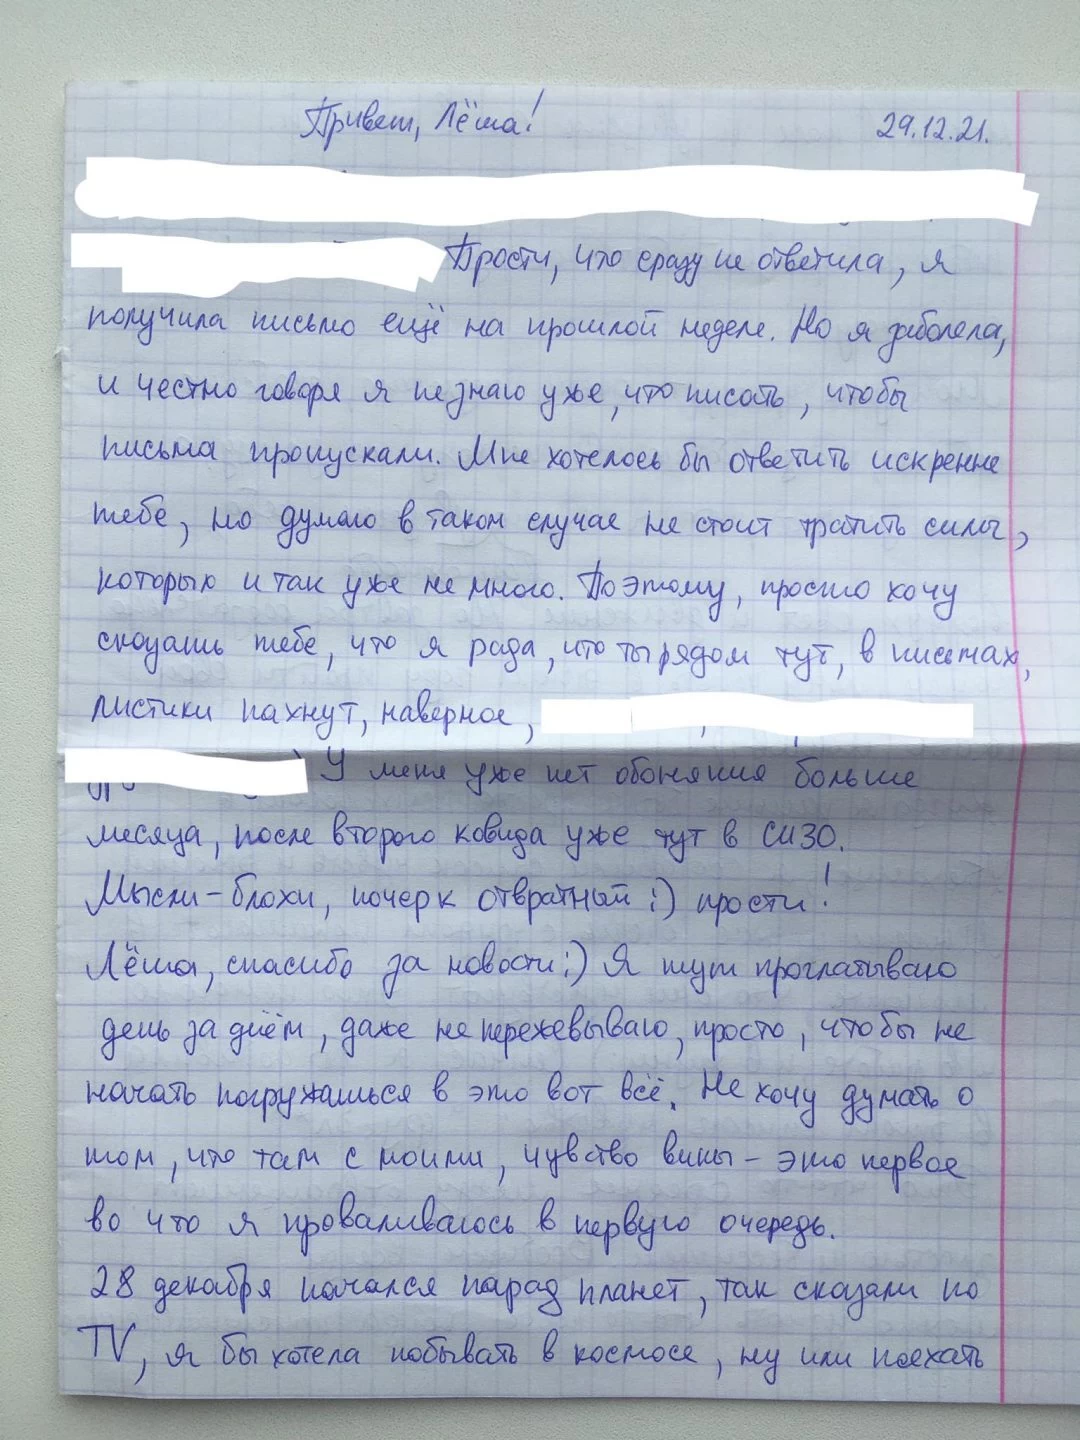 Привет, Лёша!
29.12.21.
Прости, что сразу не ответила, я
получила письмо ещё на прошлой неделе. Но я заболела,
и честно говоря я не знаю уже, что писать, чтобы
письма пропускали. Мне хотелось бы ответить искренне
тебе, но думаю в таком случае не стоит тратить силы,
которых и так уже не много. Поэтому, просто хочу
сказать тебе, что я рада, что ты рядом тут, в письмах,
листики пахнут, наверное,
У меня уже нет обоняния больше
месяца, после второго ковида уже тут в СИЗО.
Мысли-блохи, почерк отвратный :) прости!
Лёша, спасибо за новости :) Я тут проглатываю
день за днём, даже не пережевываю, просто, чтобы не
начать погружаться в это вот всё. Не хочу думать о
том, что там с моими, чувство вины - это первое
во что я проваливаюсь в первую очередь.
28 декабря начался парад планет, так сказали по
TV, я бы хотела побывать в космосе, ну или поехать